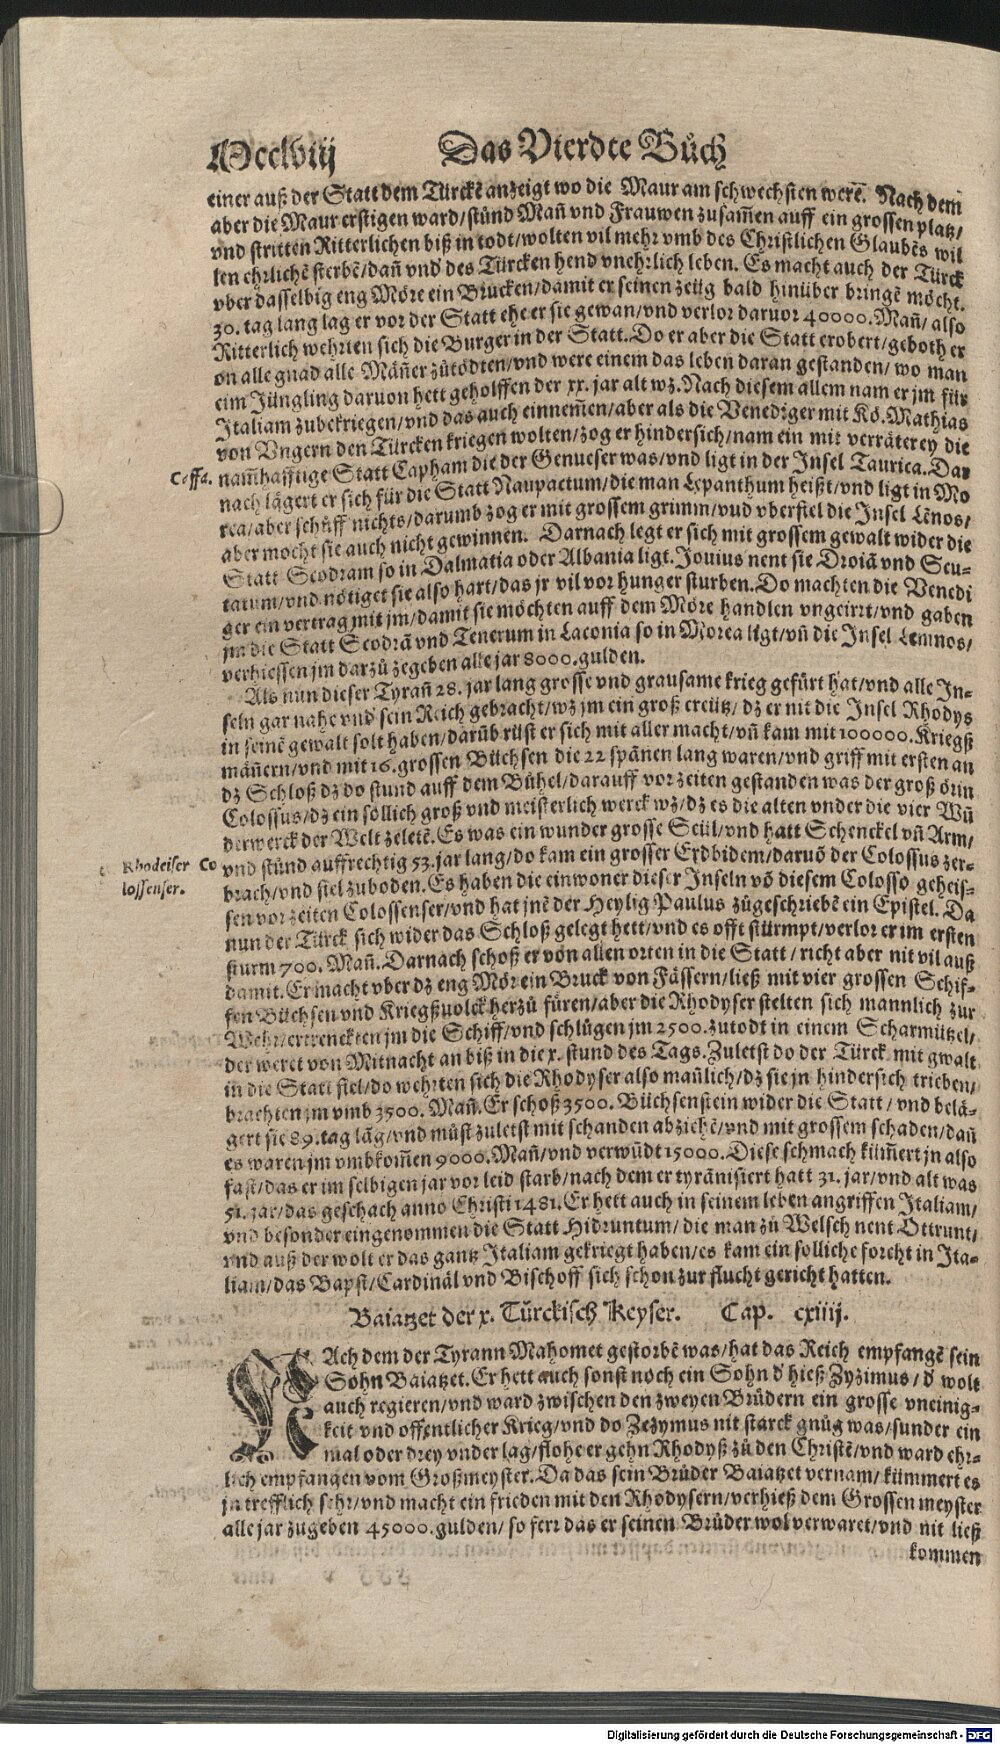 Mcclviij Das Vierdte Bůch
einer auß der Statt dem Türckē anzeigt wo die Maur am schwechsten werē. Nach dem
aber die Maur erstigen ward/stůnd Mañ vnd Frauwen zusam̄en auff ein grossen platz/
vnd stritten Ritterlichen biß in todt/wolten vil mehr vmb des Christlichen Glaubēs wil
len ehrlichē sterbē/dañ vnd des Türcken hend vnehrlich leben. Es macht auch der Türck
vber dasselbig eng Möre ein Brucken/damit er seinen zeüg bald hinüber bringē möcht.
30. tag lang lag er vor der Statt ehe er sie gewan/vnd verlor daruor 40000. Mañ/ also
Ritterlich wehrten sich die Burger in der Statt. Do er aber die Statt erobert/geboth er
on alle gnad alle Mäñer zůtödten/vnd were einem das leben daran gestanden/ wo man
eim Jüngling daruon hett geholffen der xx. jar alt wz. Nach diesem allem nam er jm für
Italiam zubekriegen/vnd das auch einnem̄en/aber als die Venediger mit Kö. Mathias
von Vngern den Türcken kriegen wolten/zog er hindersich/nam ein mit verräterey die
Caffa. nam̄hafftige Statt Capham die der Genueser was/vnd ligt in der Insel Taurica. Dar
nach lägert er sich für die Statt Naupactum/die man Lepanthum heißt/vnd ligt in Mo
rea/aber schůff nichts/darumb zog er mit grossem grimm/vud vberfiel die Insel Lēnos/
aber mocht sie auch nicht gewinnen. Darnach legt er sich mit grossem gewalt wider die
Statt Scodram so in Dalmatia oder Albania ligt. Jouius nent sie Droiā vnd Scu-
tarum/vnd nötiget sie also hart/das jr vil vor hunger sturben. Do machten die Venedi
ger ein vertrag mit jm/damit sie möchten auff dem Möre handlen vngeirrt/vnd gaben
jm die Statt Scodrā vnd Tenerum in Laconia so in Morea ligt/vñ die Insel Lemnos/
verhiessen jm darzů zegeben alle jar 8000. gulden.
Als nun dieser Tyrañ 28. jar lang grosse vnd grausame krieg gefürt hat/vnd alle In-
seln gar nahe vnd sein Reich gebracht/wz jm ein groß creütz/ dz er nit die Insel Rhodys
in seinē gewalt solt haben/darūb rüst er sich mit aller macht/vñ kam mit 100000. Kriegß
mäñern/vnd mit 16. grossen Büchsen die 22 spānen lang waren/vnd griff mit ersten an
dz Schloß dz do stund auff dem Bühel/darauff vor zeiten gestanden was der groß örin
Colossus/dz ein söllich groß vnd meisterlich werck wz/dz es die alten vnder die vier Wū
derwerck der Welt zeletē. Es was ein wunder grosse Seül/vnd hatt Schenckel vñ Arm/
Rhodeiser Co vnd stůnd auffrechtig 53. jar lang/do kam ein grosser Erdbidem/daruō der Colossus zer-
lossenser. brach/vnd fiel zuboden. Es haben die einwoner dieser Inseln vō diesem Colosso geheis-
sen vor zeiten Colossenser/vnd hat jnē der Heylig Paulus zůgeschriebē ein Epistel. Da
nun der Türck sich wider das Schloß gelegt hett/vnd es offt stürmpt/verlor er im ersten
sturm 700. Mañ. Darnach schoß er von allen orten in die Statt / richt aber nit vil auß
damit. Er macht vber dz eng Mör ein Bruck von Fässern/ließ mit vier grossen Schif-
fen Büchsen vnd Kriegßuolck herzů füren/aber die Rhodyser stelten sich mannlich zur
Wehr/ertrenckten jm die Schiff/vnd schlůgen jm 2500. zutodt in einem Scharmützel/
der weret von Mitnacht an biß in die x. stund des Tags. Zuletst do der Türck mit gwalt
in die Statt fiel/do wehrten sich die Rhodyser also mañlich/dz sie jn hindersich trieben/
brachten jm vmb 3500. Mañ. Er schoß 3500. Büchsenstein wider die Statt / vnd belä-
gert sie 89. tag lāg/vnd můst zuletst mit schanden abziehē/vnd mit grossem schaden/dañ
es waren jm vmbkom̄en 9000. Mañ/vnd verwūdt 15000. Diese schmach küm̄ert jn also
fast/das er im selbigen jar vor leid starb/nach dem er tyrānisiert hatt 31. jar/vnd alt was
51. jar/das geschach anno Christi 1481. Er hett auch in seinem leben angriffen Italiam/
vnd besonder eingenommen die Statt Hidruntum/ die man zů Welsch nent Ottrunt/
vnd auß der wolt er das gantz Italiam gekriegt haben/es kam ein solliche forcht in Ita-
liam/das Bapst/Cardinäl vnd Bischoff sich schon zur flucht gericht hatten.
Baiatzet der x. Türckisch Keyser. Cap. cxiiij.
NAch dem der Tyrann Mahomet gestorbē was/hat das Reich empfangē sein
Sohn Baiatzet. Er hett auch sonst noch ein Sohn d' hieß Zyzimus / d' wolt
auch regieren/vnd ward zwischen den zweyen Brüdern ein grosse vneinig-
keit vnd offentlicher Krieg/vnd do Zezymus nit starck gnůg was/sunder ein
mal oder drey vnder lag/flohe er gehn Rhodyß zů den Christē/vnd ward ehr-
lich empfangen vom Großmeyster. Da das sein Brůder Baiatzet vernam/ kümmert es
jn trefflich sehr/vnd macht ein frieden mit den Rhodysern/verhieß dem Grossen meyster
alle jar zugeben 45000. gulden/ so ferr das er seinen Brůder wol verwaret/vnd nit ließ
kommen
Digitalisierung gefördert durch die Deutsche Forschungsgemeinschaft - DFG